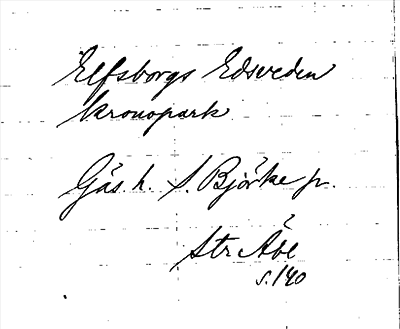 Elfsborgs Edsveden
kronopark
Gäs. h. S. Björke p.
Str Åbe
s. 140